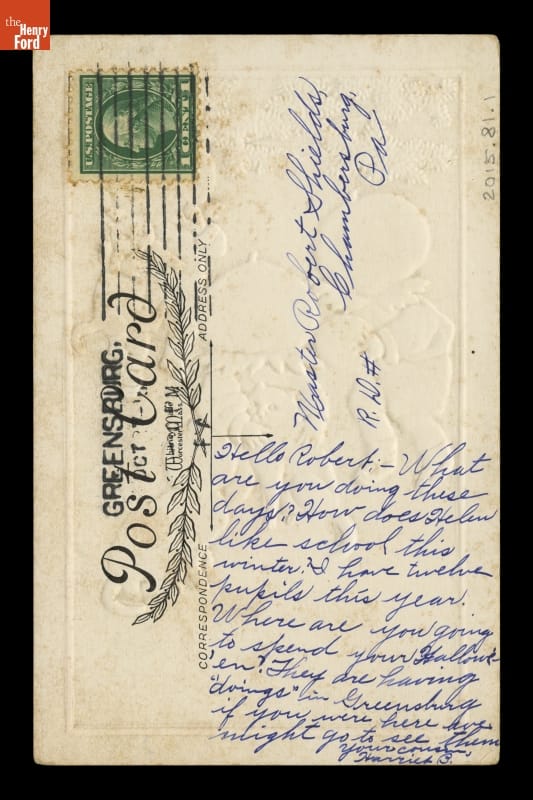 the
Henry
Ford
2015.81.1
U.S. POSTAGE
1 CENT 1
GREENSBURG,
OCT
Post Card
Worcester, Mass.
ADDRESS ONLY
CORRESPONDENCE
Master Robert Shields,
Chambersburg,
Pa
R.D.#
Hello Robert:- What
are you doing these
days? How does Helen
like school this
winter? I have twelve
pupils this year.
Where are you going
to spend your Hallow-
'en? They are having
"doings" in Greensburg
if you were here we
might go to see them
Your cousin,
Harriet B.